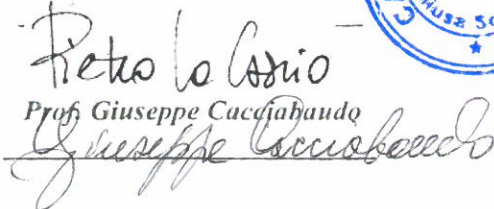 Pietro Lo Cascio
Prof. Giuseppe Cacciabaudo
Giuseppe Cacciabaudo